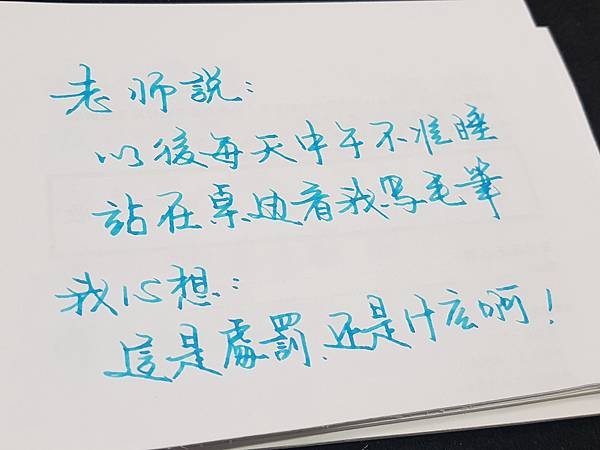 老师説：
以後每天中午不准睡
站在桌边看我写毛筆
我心想：
這是處罰、还是什么啊！